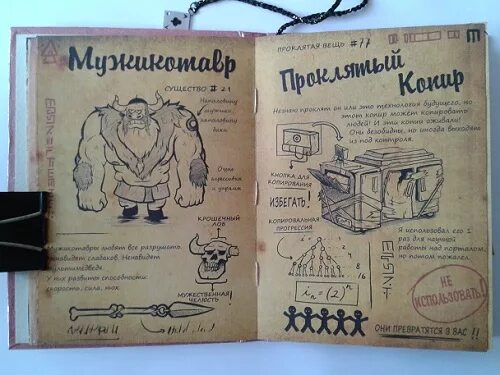 Мужикотавр
СУЩЕСТВО # 21
Наполовину
мужик,
наполовину
бык
Очень
агрессивен
и упрям
КРОШЕЧНЫЙ
ЛОБ
Мужикотавры любят все разрушать.
Ненавидят сладкое. Ненавидят
мультимедведя.
У них развиты способности:
скорость, сила, нюх
МУЖЕСТВЕННАЯ
ЧЕЛЮСТЬ
ПРОКЛЯТАЯ ВЕЩЬ #77
Проклятый
Копир
Незнаю проклят он или это технология будущего, но
этот копир может копировать
людей! И эти копии оживали!
Они безобидны, но иногда выходят
из под контроля.
КНОПКА ДЛЯ
КОПИРОВАНИЯ
ИЗБЕГАТЬ!
КОПИРОВАЛЬНАЯ
ПРОГРЕССИЯ
2
4
8
16
Xn = (2)^n
Я использовал его 1
раз для научной
работы над порталом,
но потом пожалел.
НЕ
ИСПОЛЬЗОВАТЬ!
ОНИ ПРЕВРАТЯТСЯ В ВАС !!